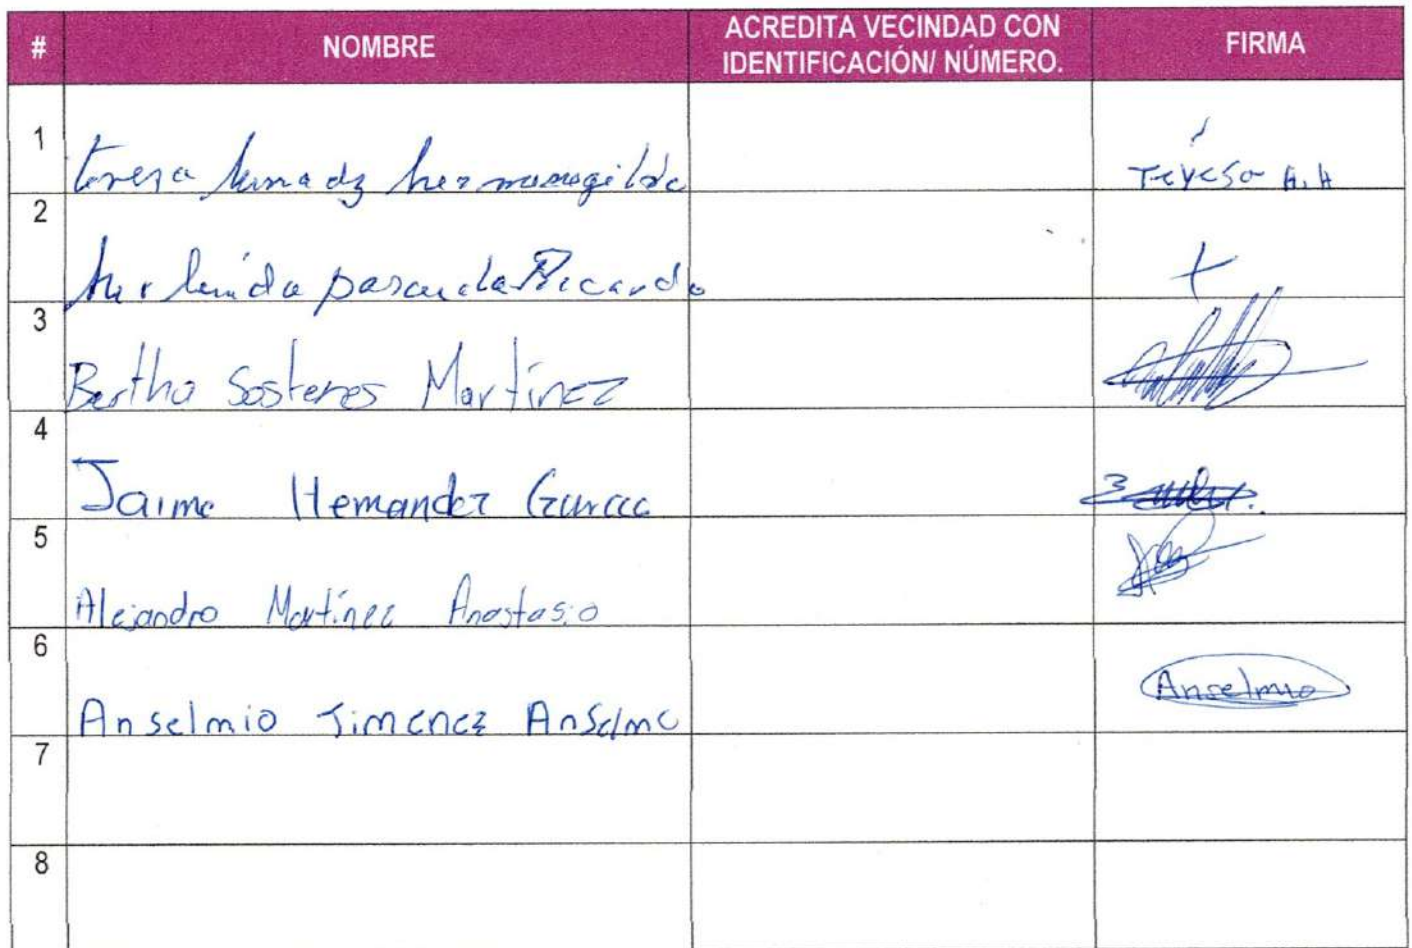 # NOMBRE ACREDITA VECINDAD CON IDENTIFICACIÓN/ NÚMERO. FIRMA
1 teresa Teresa H.H
2 Ricardo
3 Bertha Sostenes Martínez
4 Jaime Hernandez Garcia
5 Alejandro Martínez Anastasio
6 Anselmio Jimenez Anselmo Anselmio
7
8